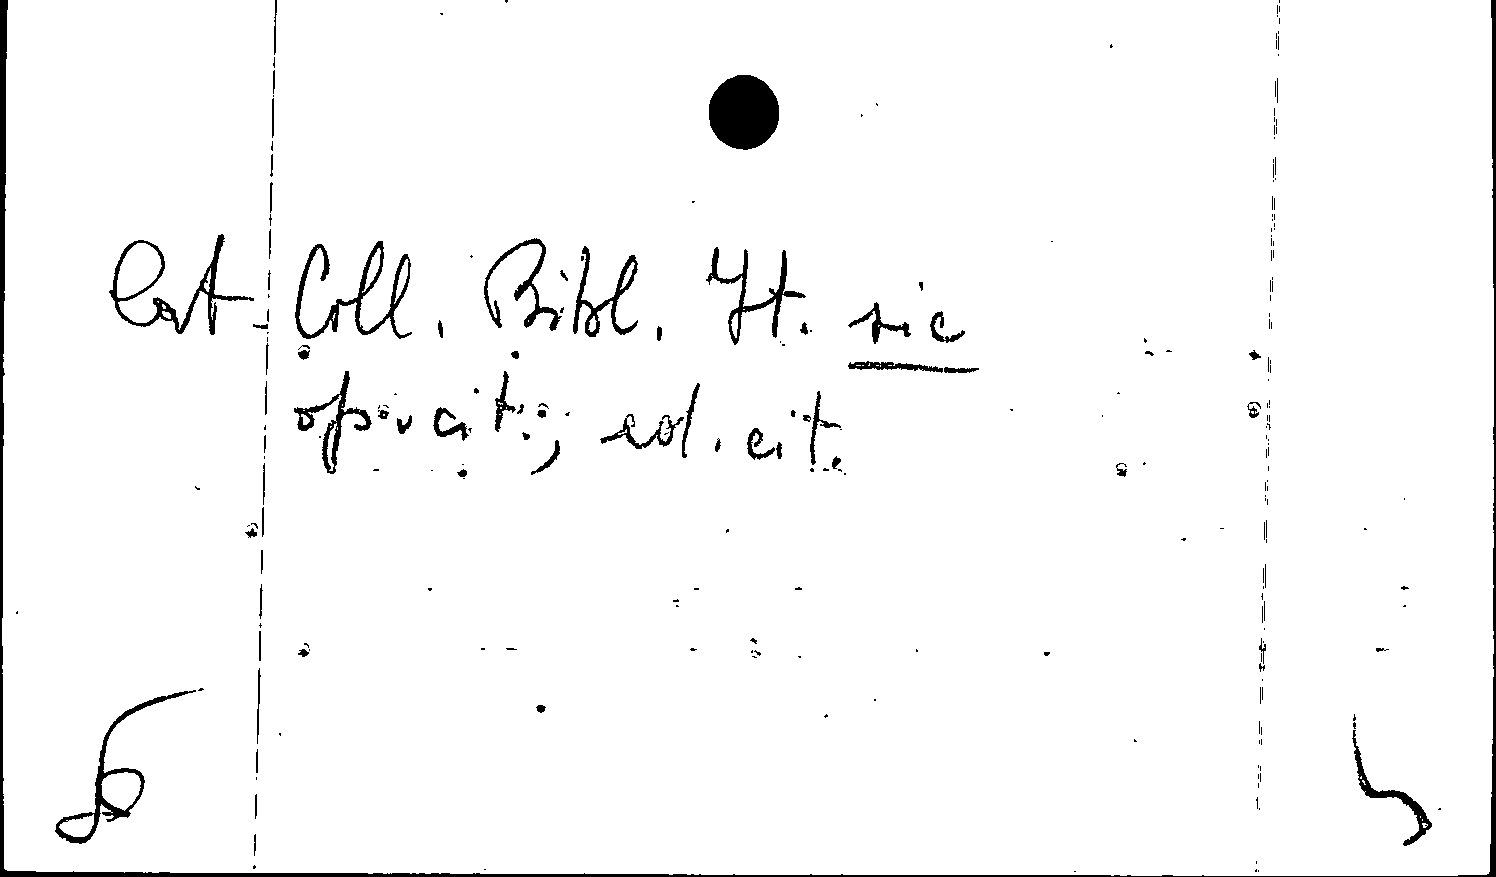 Cat. Coll. Bibl. It. sic
op. cit.; ed. cit.